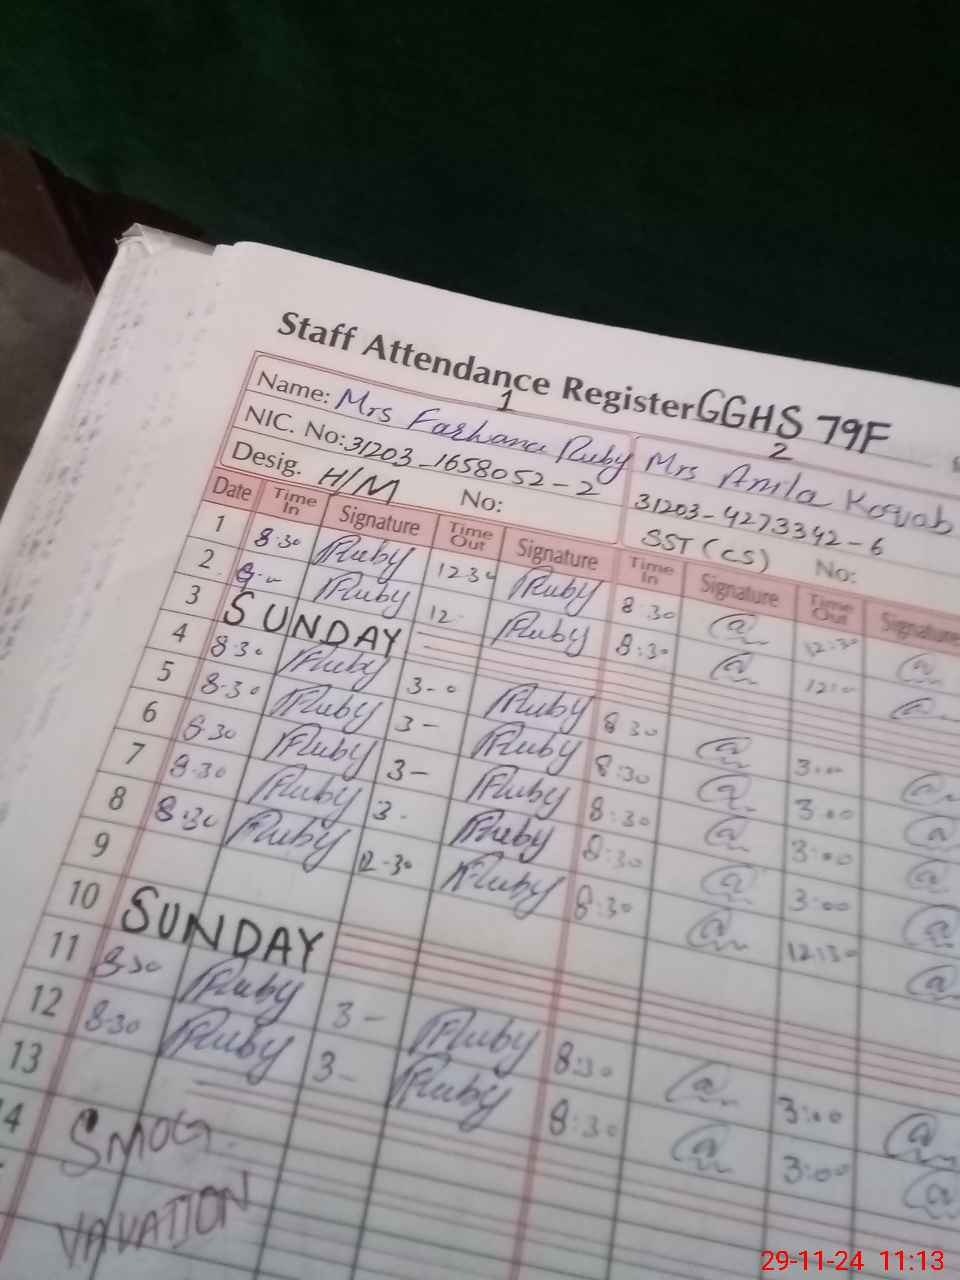 Staff Attendance Register GGHS 79F
1
2
Name: Mrs Farhana Ruby Mrs Anila Kowab
NIC. No: 31203-1658052-2 31203-4273342-6
Desig. H/M No: SST (CS) No:
Date Time In Signature Time Out Signature Time In Signature Time Out Signature
1 8:30 Ruby 12:30 Ruby 8:30 12:30
2 Ruby 12 Ruby 8:30 12:00
3 SUNDAY
4 8:30 Ruby 3-0 Ruby 8:30 3:00
5 8:30 Ruby 3- Ruby 8:30 3:00
6 8:30 Ruby 3- Ruby 8:30 3:00
7 8:30 Ruby 3- Ruby 8:30 3:00
8 8:30 Ruby 12-30 Ruby 8:30 12:30
9
10 SUNDAY
11 8:30 Ruby 3- Ruby 8:30 3:00
12 8:30 Ruby 3- Ruby 8:30 3:00
13
14 SMOG
VAVATION
29-11-24 11:13